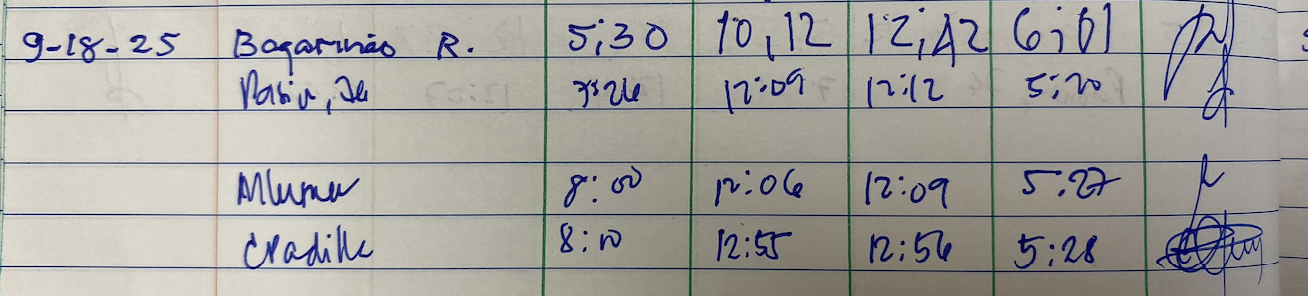 9-18-25 Bagarinao R. 5:30 10,12 12:42 6:01
7:26 12:09 12:12 5:20
8:00 12:06 12:09 5:27
8:10 12:55 12:56 5:28